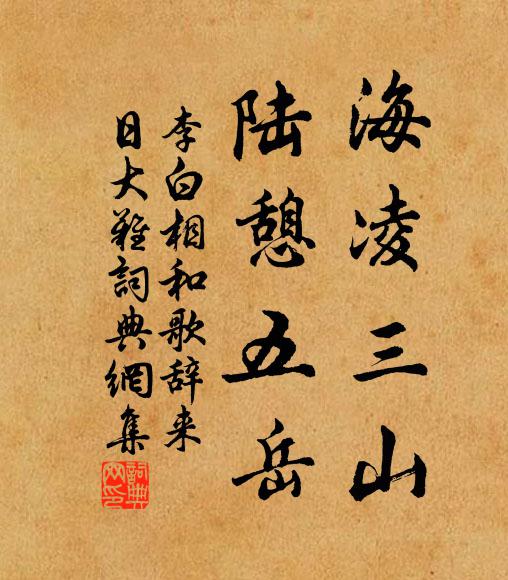 海凌三山
陆憩五岳
李白相和歌辞来
日大难詞典網集
詞典网印